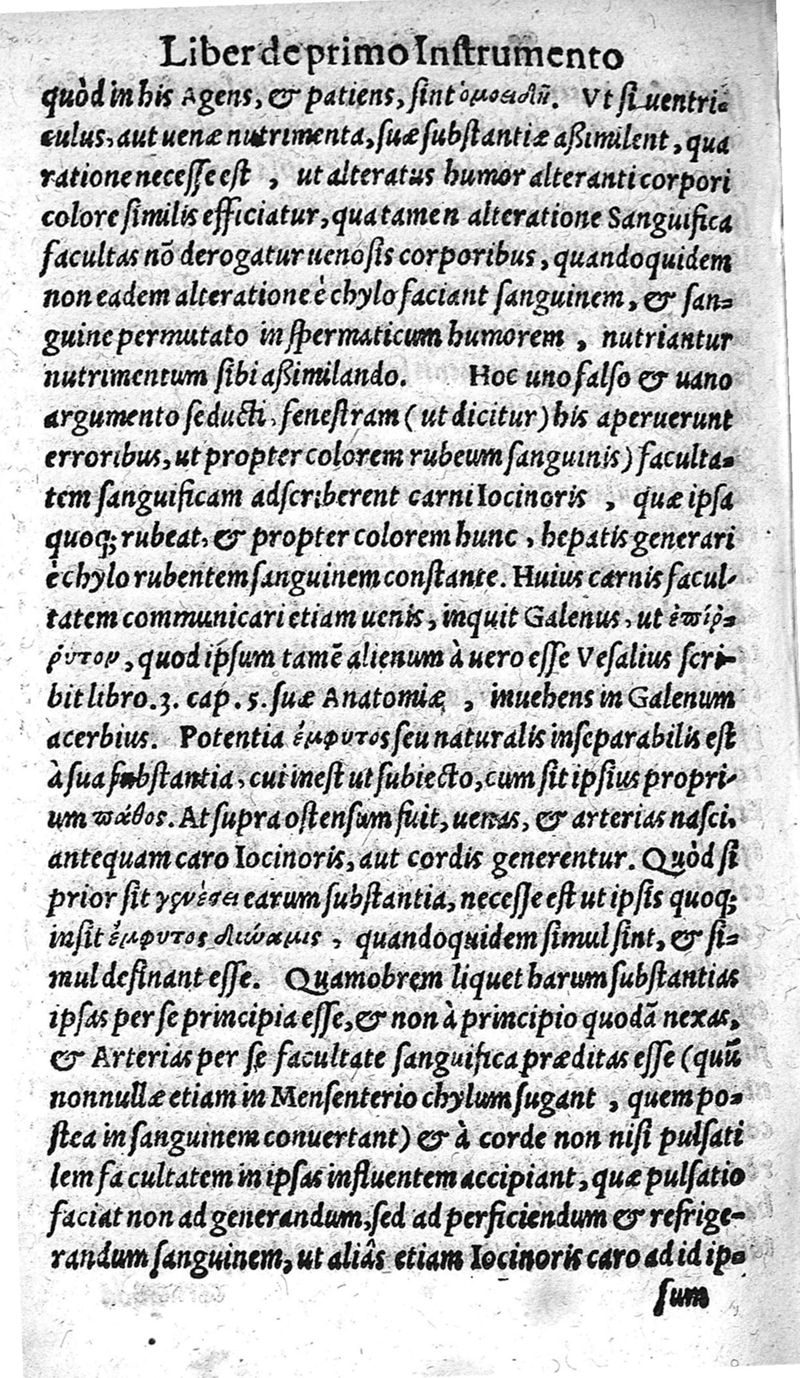 Liber de primo Instrumento
quòd in his Agens, & patiens, sint ὁμοειδῆ. Vt si uentri-
culus, aut uenæ nutrimenta, suæ substantiæ aßimilent, qua
ratione necesse est , ut alteratus humor alteranti corpori
colore similis efficiatur, qua tamen alteratione Sanguifica
facultas nō derogatur uenosis corporibus, quandoquidem
non eadem alteratione è chylo faciant sanguinem, & san-
guine permutato in spermaticum humorem , nutriantur
nutrimentum sibi aßimilando. Hoc uno falso & uano
argumento seducti, fenestram ( ut dicitur) his aperuerunt
erroribus, ut propter colorem rubeum sanguinis) faculta-
tem sanguificam adscriberent carni Iocinoris , quæ ipsa
quoq; rubeat, & propter colorem hunc , hepatis generari
è chylo rubentem sanguinem constante. Huius carnis facul-
tatem communicari etiam uenis, inquit Galenus, ut ἐπίῤ-
ῥυτον, quod ipsum tamē alienum à uero esse Vesalius scri-
bit libro. 3. cap. 5. suæ Anatomiæ , inuehens in Galenum
acerbius. Potentia ἔμφυτος seu naturalis inseparabilis est
à sua substantia, cui inest ut subiecto, cum sit ipsius propri-
um πάθος. At supra ostensum fuit, uenas, & arterias nasci,
antequam caro Iocinoris, aut cordis generentur. Quòd si
prior sit γενέσει earum substantia, necesse est ut ipsis quoq;
insit ἔμφυτος δύναμις , quandoquidem simul sint, & si-
mul desinant esse. Quamobrem liquet harum substantias
ipsas per se principia esse, & non à principio quodā nexas,
& Arterias per se facultate sanguifica præditas esse (quū
nonnullæ etiam in Mensenterio chylum sugant , quem po-
stea in sanguinem conuertant) & à corde non nisi pulsati
lem facultatem in ipsas influentem accipiant, quæ pulsatio
faciat non ad generandum, sed ad perficiendum & refrige-
randum sanguinem, ut aliâs etiam Iocinoris caro ad id ip-
sum